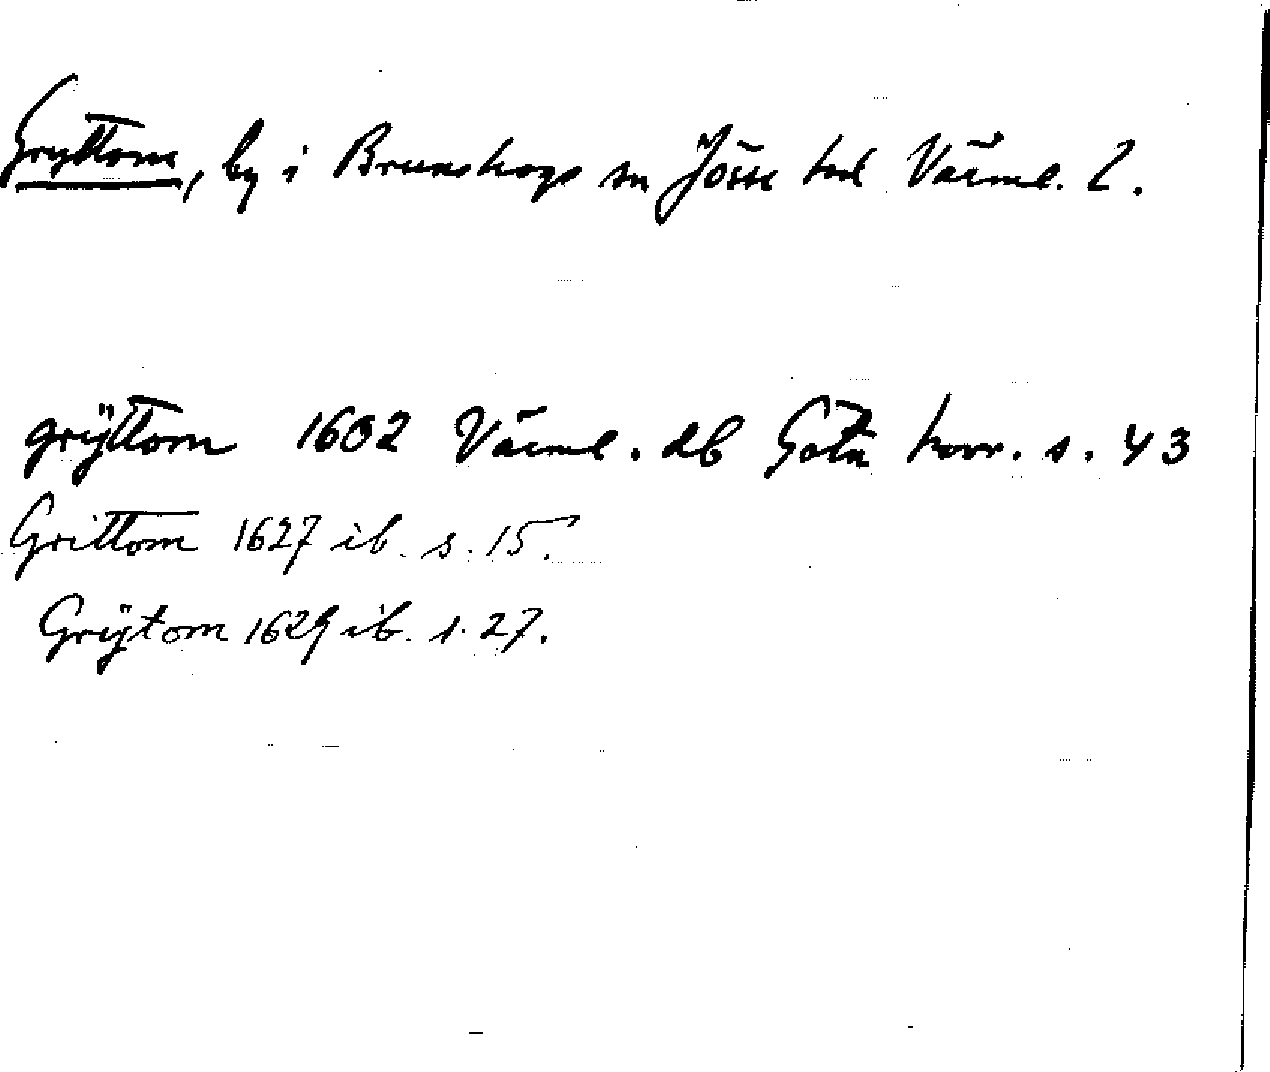 Gryttom, by i Brunskogs sn Jösse hd Värml. l.
grÿttom 1602 Värml. db Göta hovr. s. 43
Grittom 1627 ib. s. 15.
Grÿtom 1629 ib. s. 27.